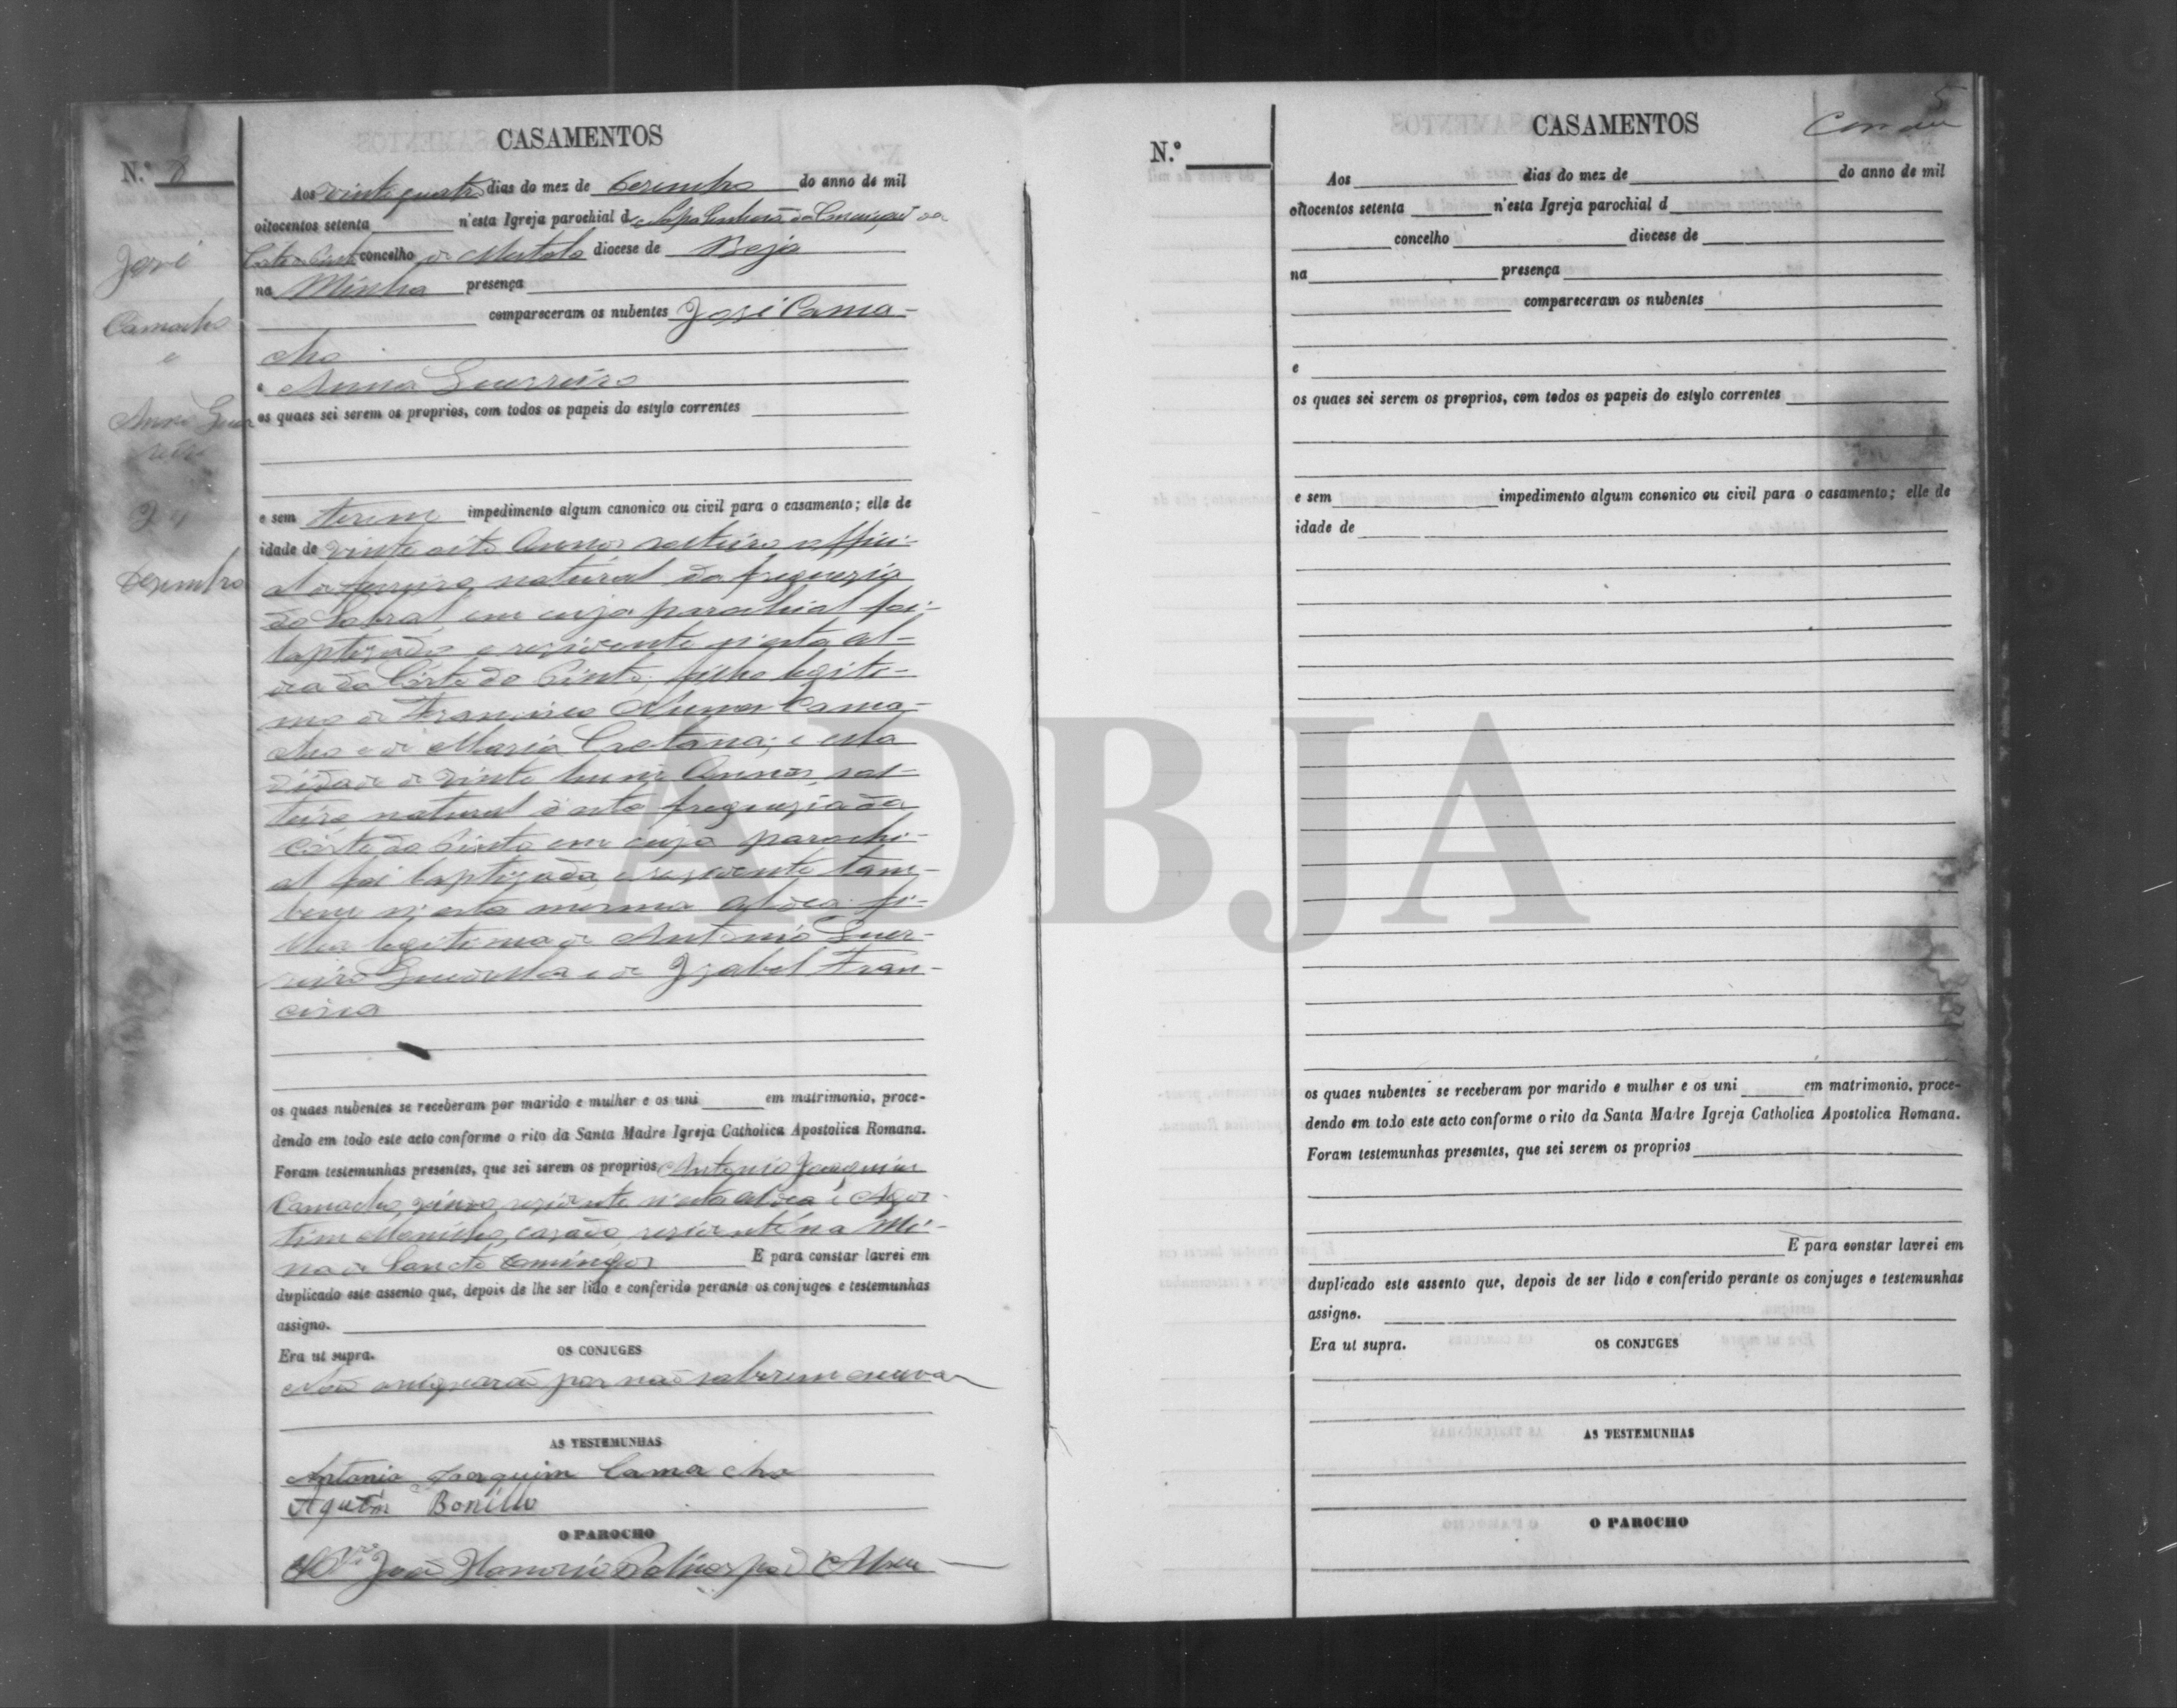 CASAMENTOS
N.º 8
Aos vinte quatro dias do mez de Dezembro do anno de mil
oitocentos setenta n'esta Igreja parochial de Nossa Senhora da Conceição da
Corte do Pinto concelho de Mertola diocese de Beja
na Minha presença
compareceram os nubentes José Cama-
cho
e Anna Guerreiro
os quaes sei serem os proprios, com todos os papeis do estylo correntes
José
Camacho
e
Anna Guer
reiro
Dezembro
e sem terem impedimento algum canonico ou civil para o casamento; elle de
idade de vinte oito annos solteiro offici-
al de ferreiro natural da freguezia
do Sobral em cuja parochial foi
baptizado e rezidente n'esta al-
dea da Córte do Pinto, filho legiti-
mo de Francisco Nunes Cama-
cho e de Maria Caetana; e ella
d'idade de vinte hum annos sol-
teira natural d'esta freguezia da
Córte do Pinto em cuja parochi-
al foi baptizada, e rezidente tam-
bem n'esta mesma aldea fi-
lha legitima de Antonio Guer-
reiro e de Izabel Fran-
cisca
os quaes nubentes se receberam por marido e mulher e os uni em matrimonio, proce-
dendo em todo este acto conforme o rito da Santa Madre Igreja Catholica Apostolica Romana.
Foram testemunhas presentes, que sei serem os proprios Antonio Joaquim
Camacho, rezidente n'esta aldea e Agos
tim casado, rezidente na Mi-
na de Sancto Domingos E para constar lavrei em
duplicado este assento que, depois de lhe ser lido e conferido perante os conjuges e testemunhas
assigno.
Era ut supra.
OS CONJUGES
Não assignarão por não saberem escrever
AS TESTEMUNHAS
Antonio Joaquim Camacho
Agustin Bonillo
O PAROCHO
João Honorio
ADBJA
5
CASAMENTOS
N.º
Aos dias do mez de do anno de mil
oitocentos setenta n'esta Igreja parochial d
concelho diocese de
na presença
compareceram os nubentes
e
os quaes sei serem os proprios, com todos os papeis do estylo correntes
e sem impedimento algum canonico ou civil para o casamento; elle de
idade de
os quaes nubentes se receberam por marido e mulher e os uni em matrimonio, proce-
dendo em todo este acto conforme o rito da Santa Madre Igreja Catholica Apostolica Romana.
Foram testemunhas presentes, que sei serem os proprios
E para constar lavrei em
duplicado este assento que, depois de ser lido e conferido perante os conjuges e testemunhas
assigno.
Era ut supra.
OS CONJUGES
AS TESTEMUNHAS
O PAROCHO